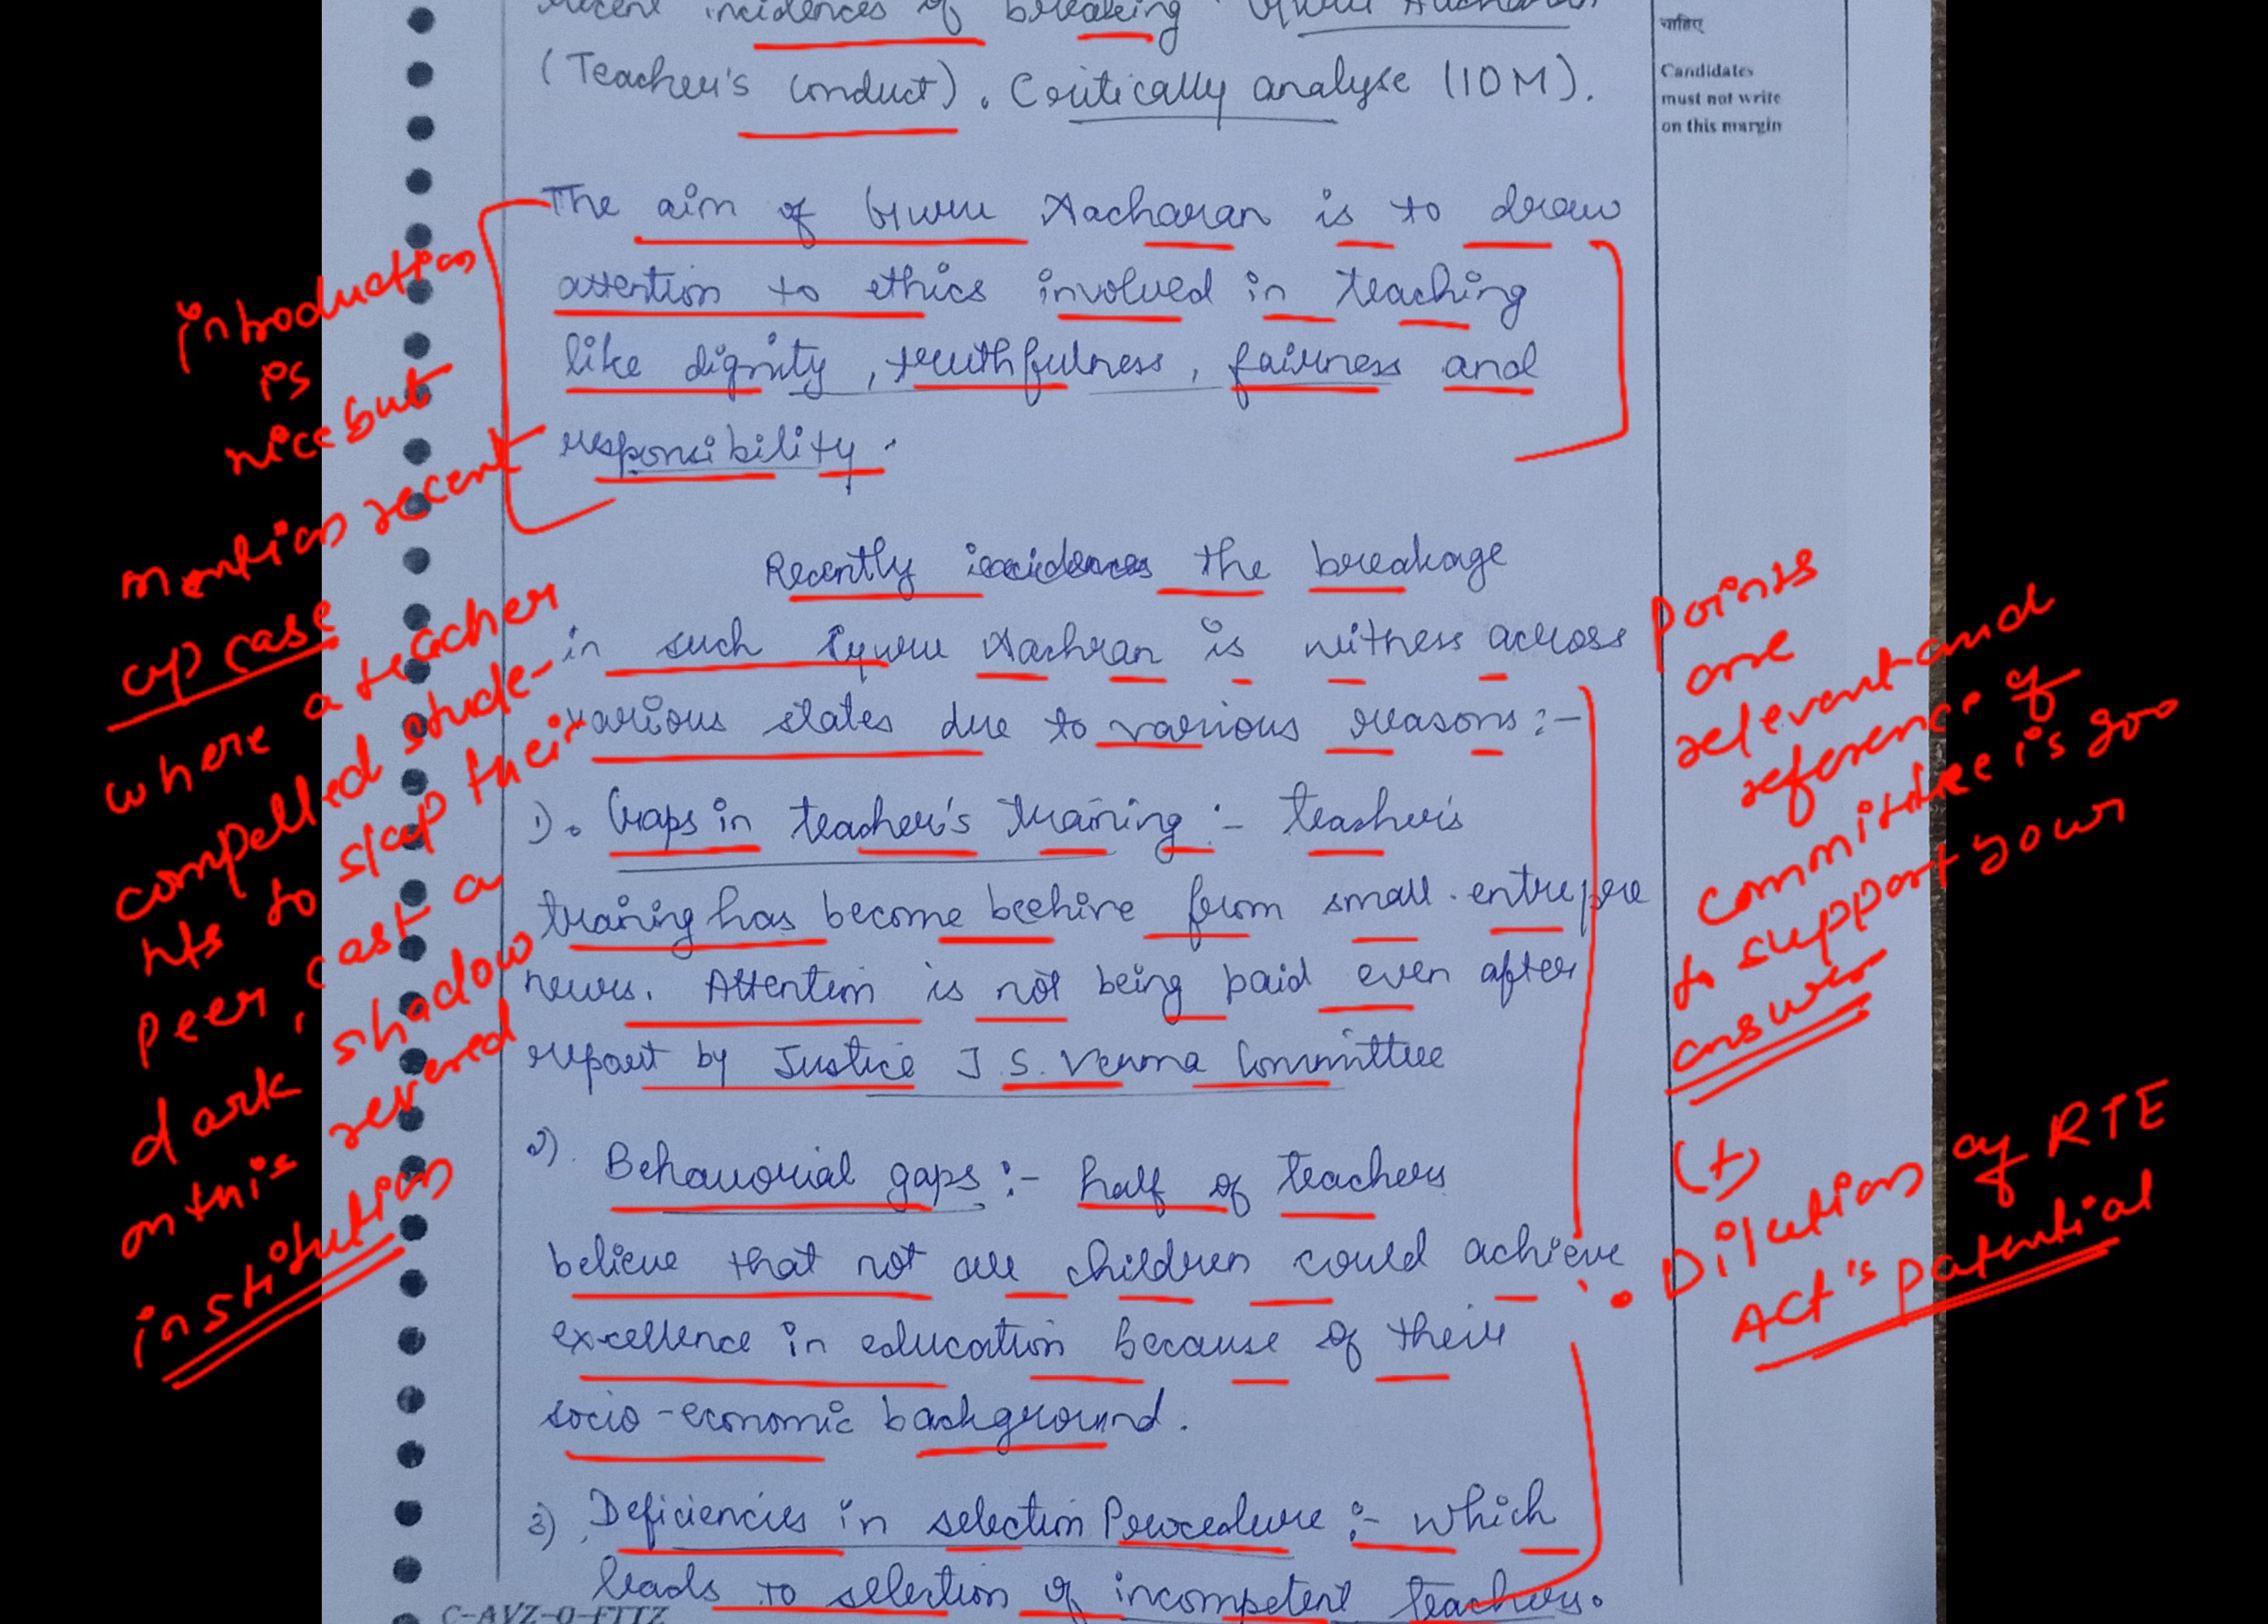 recent incidences of breaking Guru Aacharan
(Teacher's Conduct). Critically analyse (10M).
चाहिए
Candidates
must not write
on this margin
The aim of Guru Aacharan is to draw
attention to ethics involved in teaching
like dignity, truthfulness, fairness and
responsibility.
Recently the breakage
in such Guru Aachran is witness across
various states due to various reasons :-
1). Gaps in teacher's training :- teacher's
training has become beehive from small entrepre
neurs. Attention is not being paid even after
report by Justice J.S. Verma Committee
2). Behavourial gaps :- half of teachers
believe that not all children could achieve
excellence in education because of their
socio-economic background.
3) Deficiencies in selection Procedure :- which
leads to selection of incompetent teachers.
C-AVZ-0-FTTZ
introduction
is
nice but
mention recent
up case
where a teacher
compelled stude-
nts to slap their
peer, cast a
dark shadow
on this revered
institution
Points
are
relevant and
reference of
committee is goo
to support your
answer
(+)
• Dilution of RTE
Act's potential